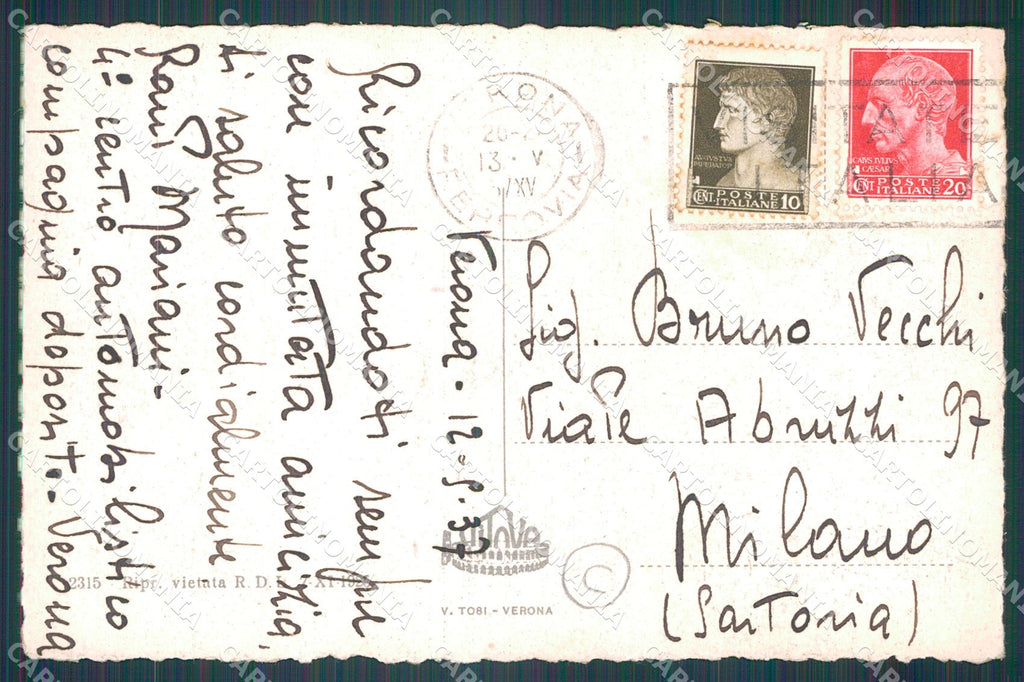 Verona - 12-5-37
Ricordandoti sempre
con immutata amicizia,
ti saluto cordialmente
Mariani -
4° centro automobilistico
compagnia deposito - Verona
VERONA
FERROVIA
13 V
XV
AUGUSTVS
IMPERATOR
CENT. POSTE ITALIANE 10
CAIVS IVLIVS
CAESAR
CENT. POSTE ITALIANE 20
Sig. Bruno Vecchi
Viale Abruzzi 97
Milano
(Sartoria)
2315 - Ripr. vietata R. D. L.
V. TOBI - VERONA
CARTOLINOMANIA